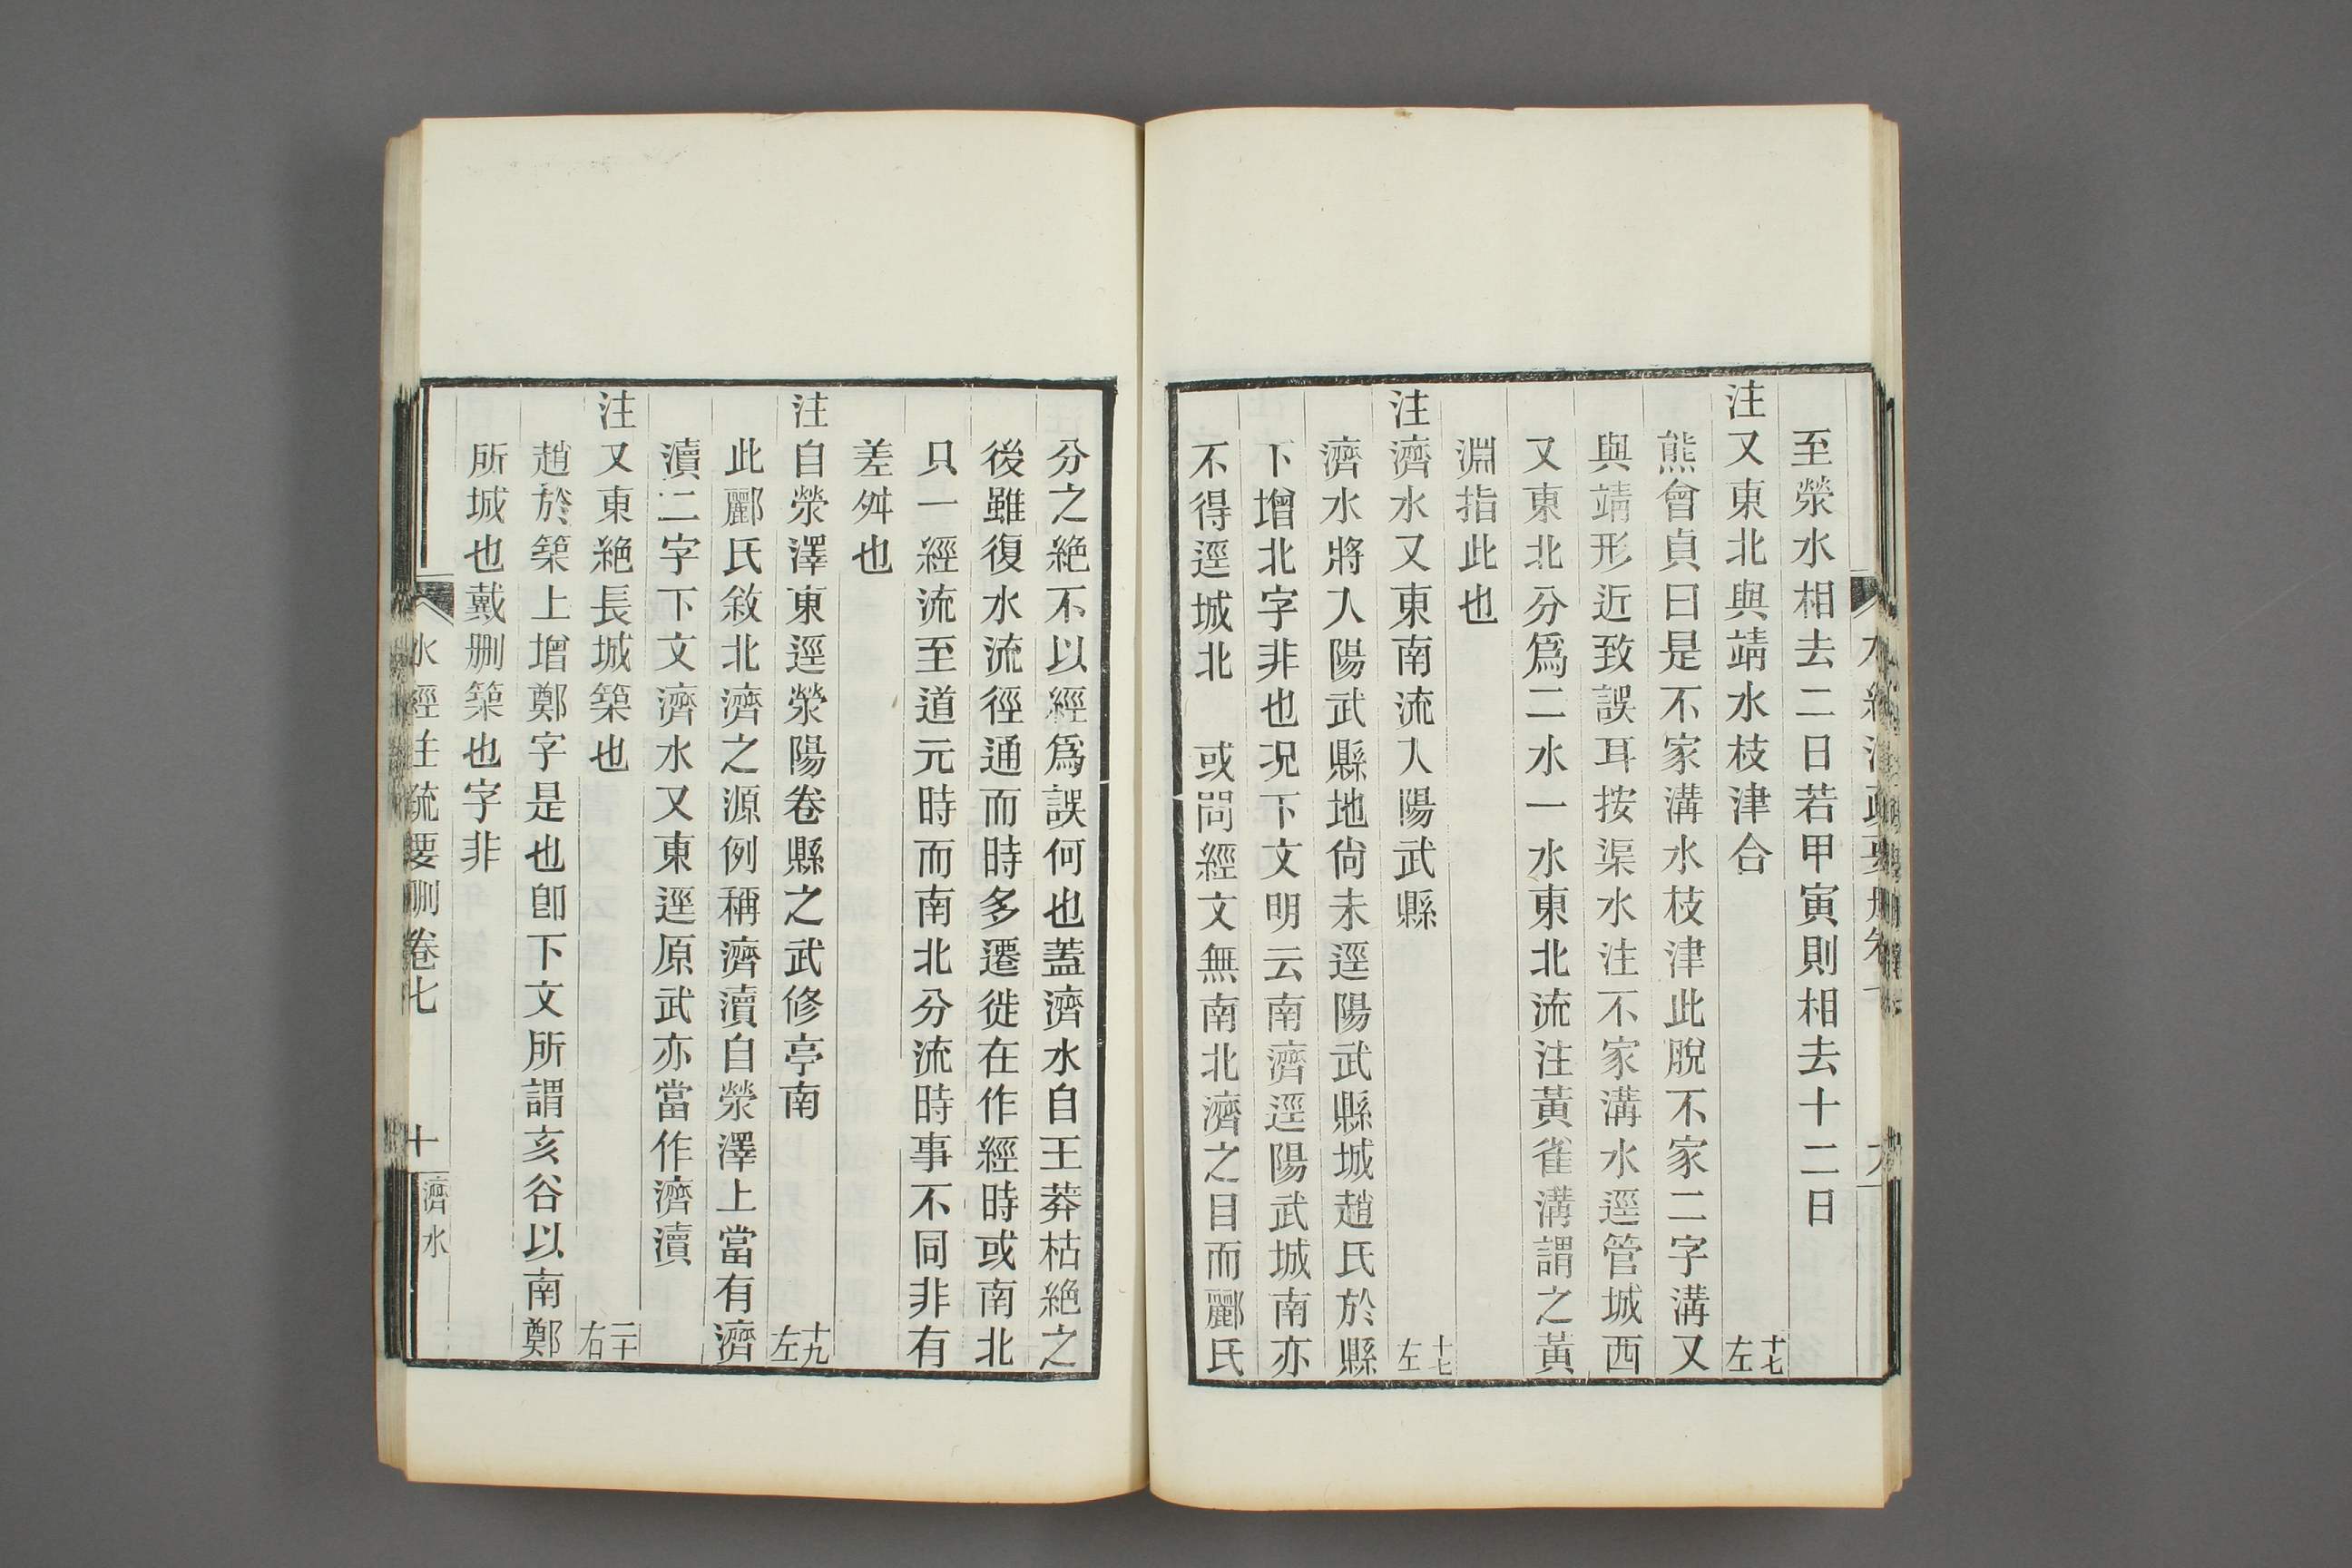 至滎水相去二日若甲寅則相去十二日
注又東北與靖水枝津合 十七左
熊會貞曰是不家溝水枝津此脫不家二字溝又
與靖形近致誤耳按渠水注不家溝水逕管城西
又東北分爲二水一水東北流注黃雀溝謂之黃
淵指此也
注濟水又東南流入陽武縣 十七左
濟水將入陽武縣地尙未逕陽武縣城趙氏於縣
下增北字非也况下文明云南濟逕陽武城南亦
不得逕城北 或問經文無南北濟之目而酈氏
分之絶不以經爲誤何也蓋濟水自王莽枯絶之
後雖復水流徑通而時多遷徙在作經時或南北
只一經流至道元時而南北分流時事不同非有
差舛也
注自滎澤東逕滎陽卷縣之武修亭南 十九左
此酈氏敘北濟之源例稱濟瀆自滎澤上當有濟
瀆二字下文濟水又東逕原武亦當作濟瀆
注又東絶長城築也 二十右
趙於築上增鄭字是也卽下文所謂亥谷以南鄭
所城也戴刪築也字非
水經注疏要刪卷七 十 濟水